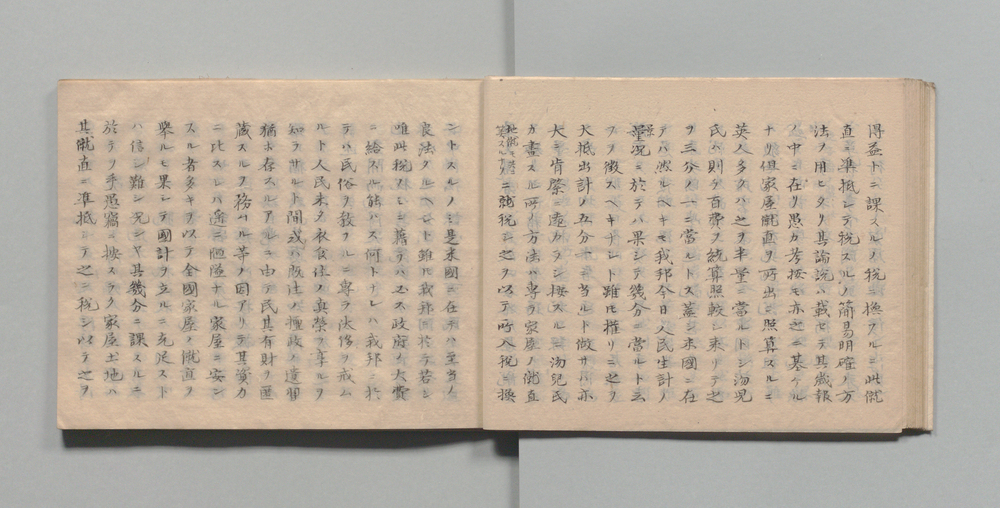 得益トニ課スルノ税ニ換フルニ此價
直ニ準抵シテ税スルノ簡易明確ノ方
法ヲ用ヒタリ其論説ハ載セテ其歳報
ノ中ニ在リ愚カ考按モ亦之ニ基ケル
ナリ但家屋價直ヲ所出ニ照算スルニ
英人多クハ之ヲ半量ニ當ルトシ沕児
氏ハ則チ百費ヲ統算照較シ来リテ之
ヲ三分ノ一ニ當ルトス蓋シ米國ニ在
テハ然ルヘキモ我邦今日人民生計ノ
景况ニ於テハ果シテ幾分ニ當ルト云
フヲ徴スヘキナシト雖ㇳ推リニ之ヲ
大抵出計ノ五分一ニ当ルト做サハ亦
大ニ肯綮ニ遠カラシ按スルニ沕児氏
カ畫スル所ノ方法ハ専ラ家屋ノ價直
ニ就税シ之ヲ以テ所入税ニ換
ントスルノミ是米國ニ在テハ至当ノ
良法タルヘシト雖ㇳ我邦ニ於テ若シ
唯此税ノミニ藉テハ以テ政府ノ大費
ニ給スル能ハス何トナレハ我邦ニ於
テハ民俗ヲ教フルニ専ラ汰侈ヲ戒ム
ルト人民未タ衣食住ノ真榮ヲ享ルヲ
知ラサルト間或ハ既往ノ極政ノ遺習
猶ホ存スルアルニ由テ民其有財ヲ匿
蔵スルヲ務ムル等ノ因アリテ其資力
ニ比スレハ遙ニ陋隘ナル家屋ニ安ン
スル者多キヲ以テ全國家屋ノ價直ヲ
舉ルモ果シテ國計ヲ立ルニ充足スト
ハ信シ難シ况ンヤ其幾分ニ課スルニ
於テヲ乎愚竊ニ按スラク家屋土地ハ
其價直ニ準抵シテ之ニ税シ以テ之ヲ